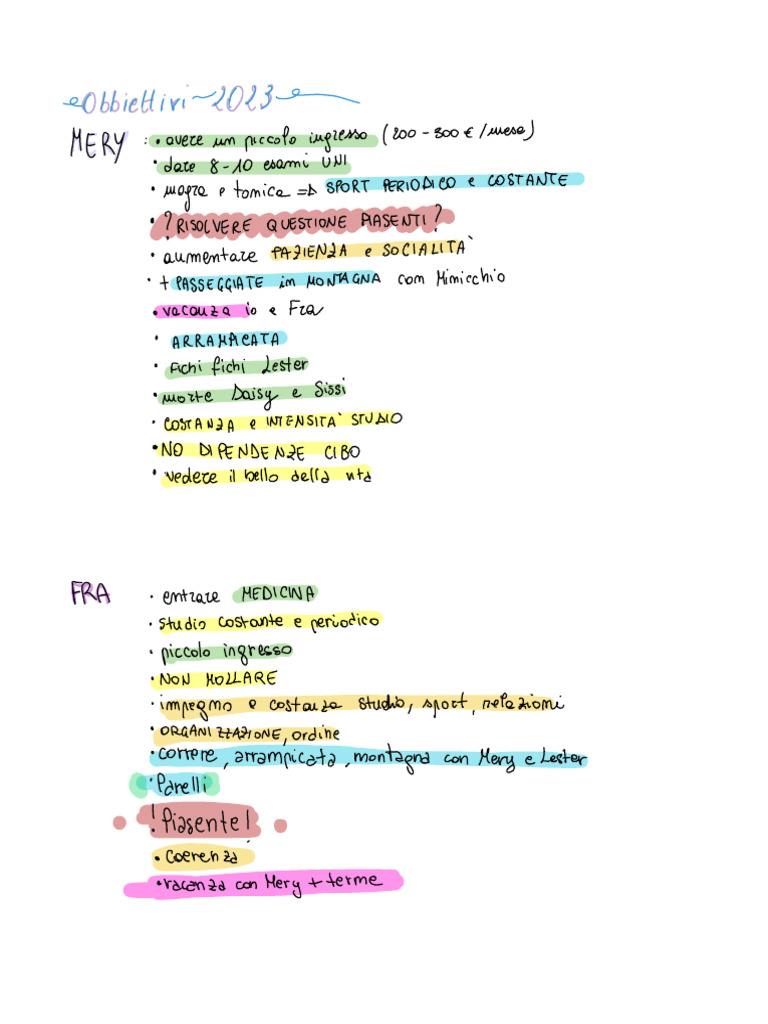 Obbiettivi ~ 2023
MERY : • avere un piccolo ingresso (200 - 300 € / mese)
• dare 8-10 esami UNI
• magra e tonica => SPORT PERIODICO e COSTANTE
• ? RISOLVERE QUESTIONE PIASENTI ?
• aumentare PAZIENZA e SOCIALITÀ
• + PASSEGGIATE in MONTAGNA con Mimicchio
• vacanza io e Fra
• ARRAMPICATA
• Fichi fichi Lester
• morte Daisy e Sissi
• COSTANZA e INTENSITÀ STUDIO
• NO DIPENDENZE CIBO
• vedere il bello della vita
FRA • entrare MEDICINA
• studio costante e periodico
• piccolo ingresso
• NON MOLLARE
• impegno e costanza studio, sport, relazioni
• ORGANIZZAZIONE, ordine
• correre, arrampicata, montagna con Mery e Lester
• Parelli
! Piasente !
• coerenza
• vacanza con Mery + terme